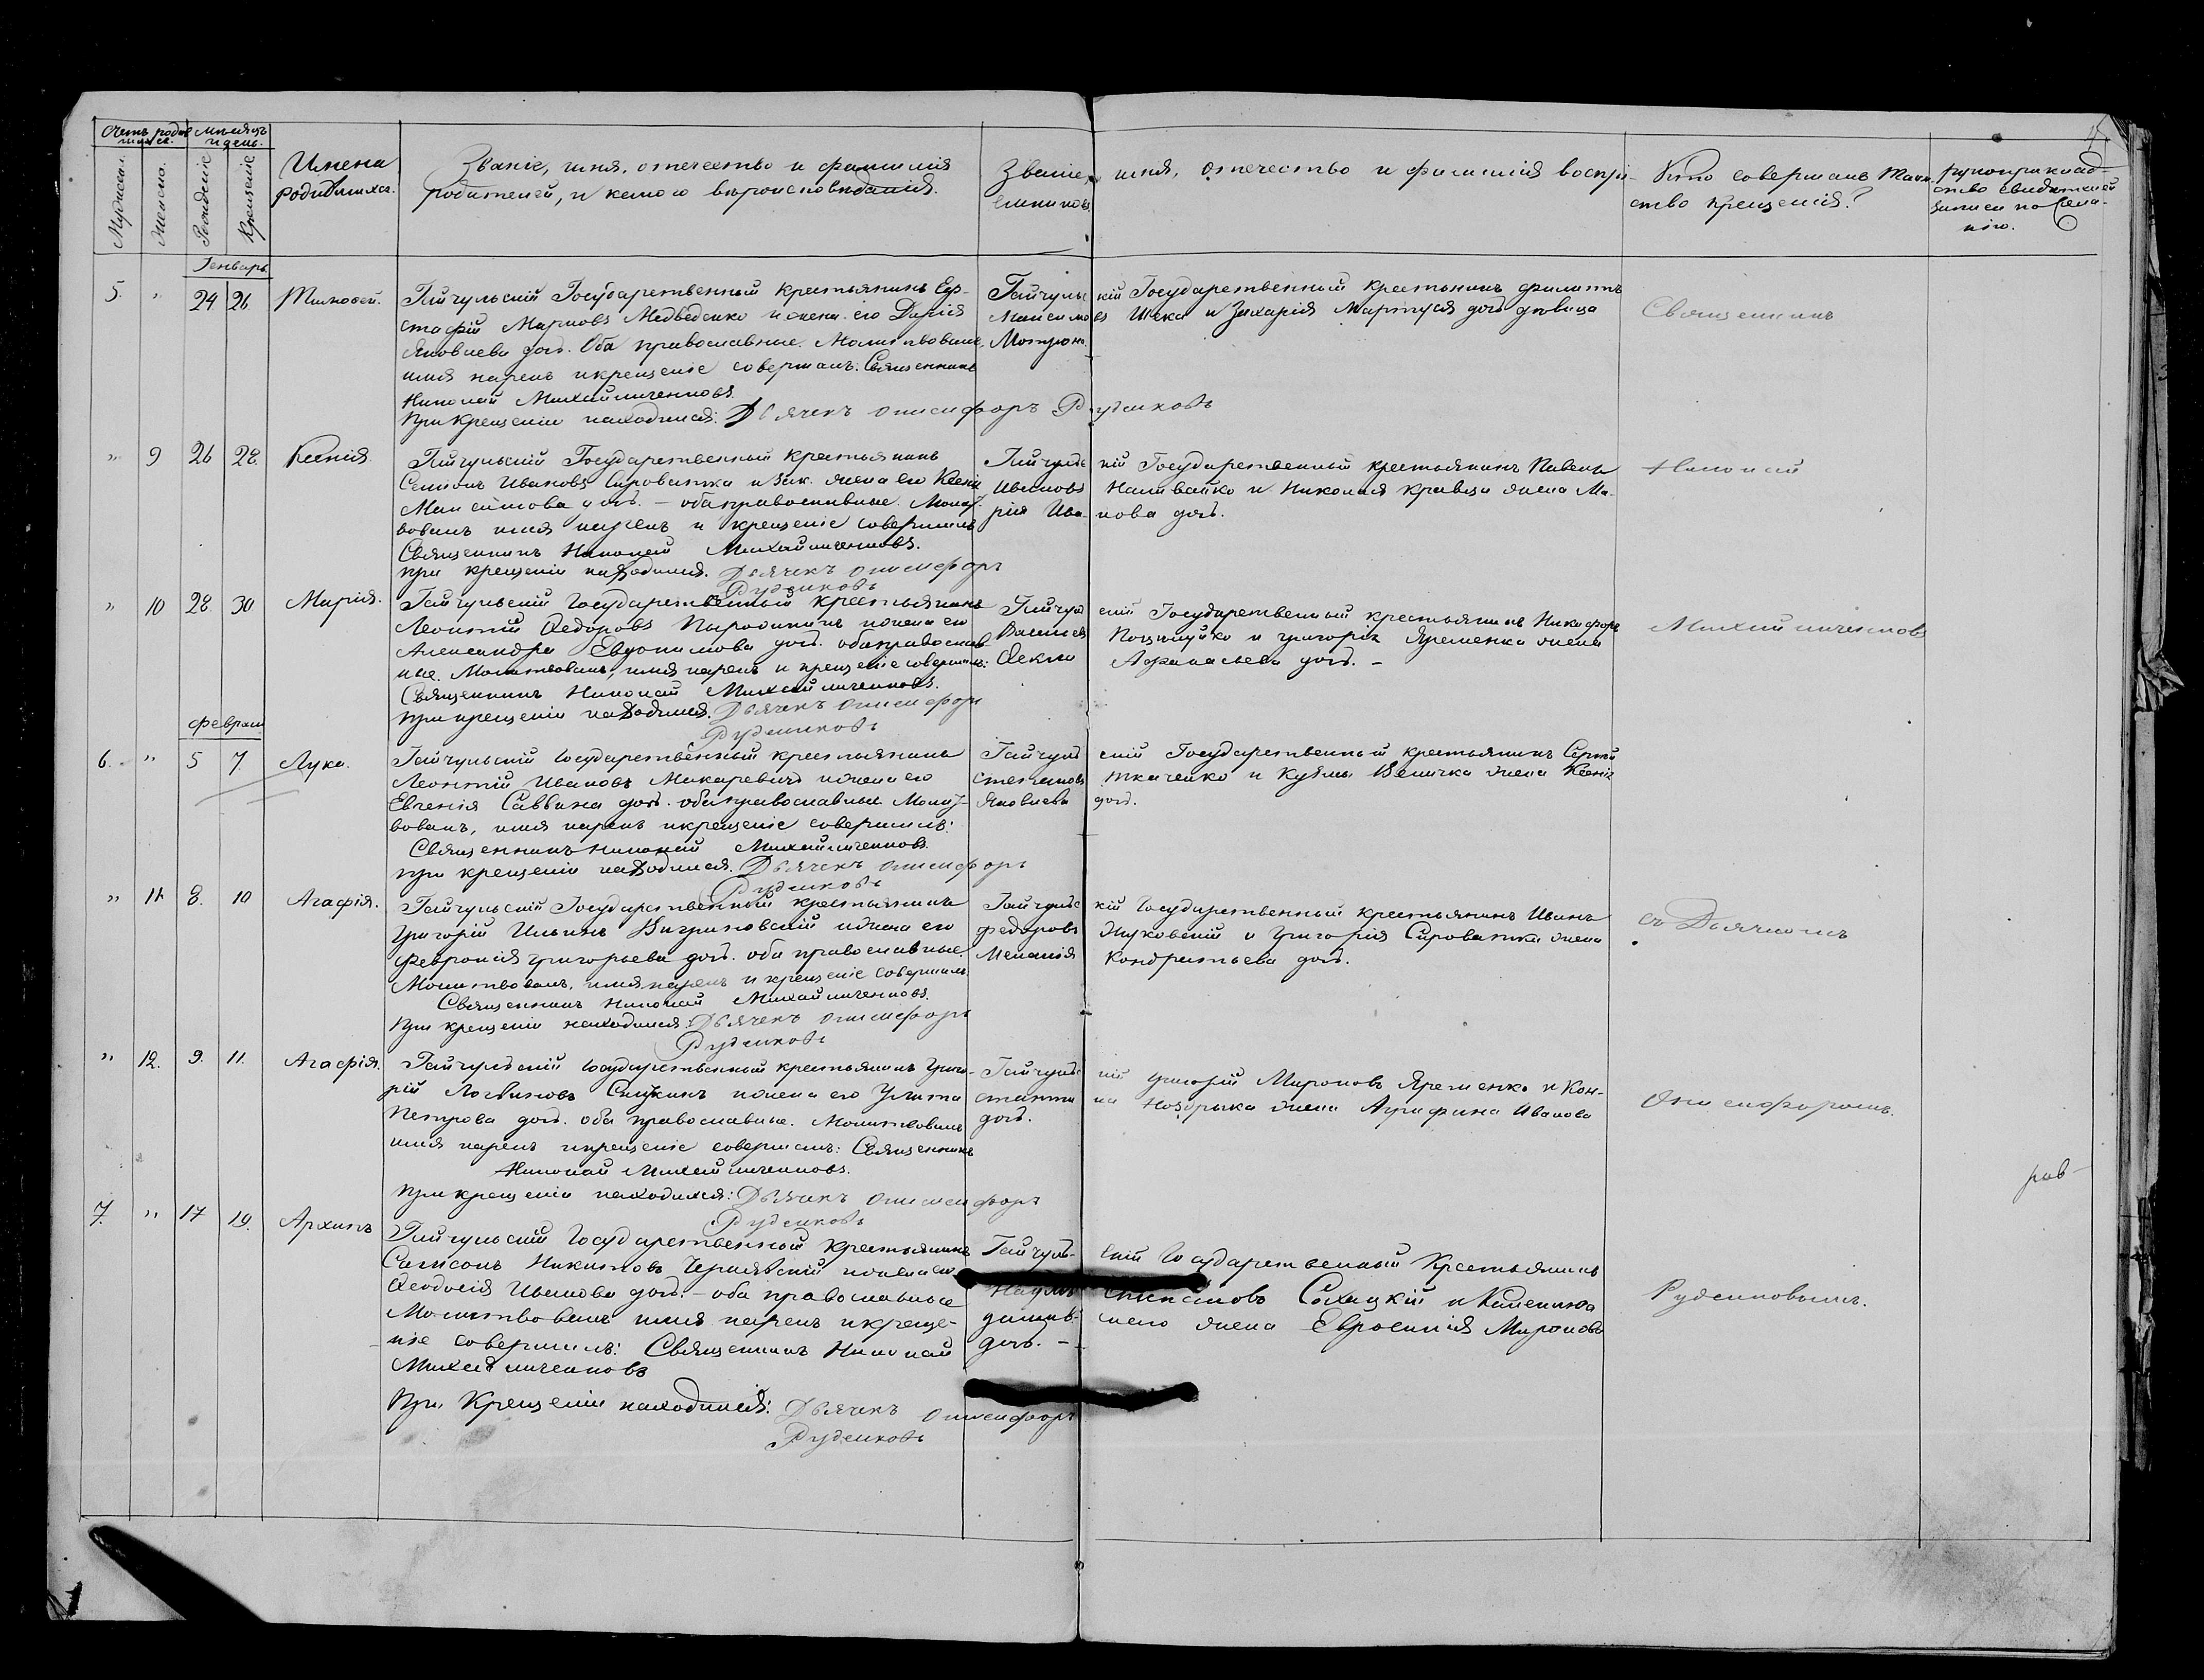 Счетъ родив
шихся.
Мѣсяцъ
и день.
Мужеска.
Женска.
Рожденіе
Крещеніе
Имена
родившихся.
Званіе, имя, отечество и фамилія
родителей, и какого вѣроисповѣданія.
Званіе, имя, отечество и фамилія воспрі-
емниковъ.
Кто совершалъ Таин
ство крещенія?
Рукоприклад-
ство свидѣтелей
записи по
Генварь
5. " 24 26. Тимофей.
Гайчульскій Государственный крестьянинъ Ев-
стафій Марковъ Медведенко и жена его Дарія
Яковлева доч. Оба православные. Молитвовалъ,
имя нарекъ и крещеніе совершалъ: Священникъ
Николай Михайличенковъ.
При крещеніи находился: Дьячекъ Онисифоръ Руденковъ
Гайчульскій Государственный крестьянинъ Филиппъ
Максимовъ Шека и Захарія дочь дѣвица
Мотрона.
Священникъ
" 9 26 28. Ксенія
Гайчульскій Государственный крестьянинъ
Семіонъ Ивановъ Сыроватка и зак. жена его Ксенія
Максимова доч. – оба православные. Молит-
вовалъ имя нарекъ и крещеніе совершилъ
Священникъ Николай Михайличенковъ.
При крещеніи находился. Дьячекъ Онисифоръ
Руденковъ
Гайчульскій Государственный крестьянинъ Павелъ
Ивановъ Наливайко и Николая Кравца жена Ма-
рія Ива- нова доч.
Николай
" 10 28 30 Марія.
Гайчульскій Государственный крестьянинъ
Леонтій Ѳедоровъ и жена его
Александра Евдокимова доч. оба православ-
ные. Молитвовалъ, имя нарекъ и крещеніе совершилъ:
Священникъ Николай Михайличенковъ.
При крещеніи находился. Дьячекъ Онисифоръ
Руденковъ
Гайчульскій Государственный крестьянинъ Никифоръ
Василев и Григорія Яременка жена
Ѳекла Афанасьева доч. –
Михайличенковъ
Феврал
6. " 5 7. Лука.
Гайчульскій Государственный крестьянинъ
Леонтій Ивановъ Макаревичъ и жена его
Евгенія Саввина доч. оба православные Молит-
вовалъ, имя нарекъ и крещеніе совершилъ:
Священникъ Николай Михайличенковъ
При крещеніи находился. Дьячекъ Онисифоръ
Руденковъ
Гайчульскій Государственный крестьянинъ Сергій
Степановъ Ткаченко и Кузмы Величка жена Ксенія
Яковлева доч.
" 11. 8. 10 Агафія.
Гайчульскій Государственный крестьянинъ
Григорій Ильинъ и жена его
Февронія Григорьева доч. оба православные.
Молитвовалъ, имя нарекъ и крещеніе совершилъ
Священникъ Николай Михайличенковъ.
При крещеніи находился: Дьячекъ Онисифоръ
Руденковъ
Гайчульскій Государственный крестьянинъ Иванъ
Федоровъ Жуковскій и Григорія Сыроватки жена
Меланія Кондратьева доч.
съ Дьячкомъ
" 12. 9. 11. Агафія.
Гайчульскій Государственный крестьянинъ Григо-
рій Логвиновъ и жена его Улита
Петрова доч. оба православные. Молитвовалъ
имя нарекъ и крещеніе совершилъ: Священникъ
Николай Михайличенковъ.
При крещеніи находился: Дьячекъ Онисифоръ
Руденковъ
Гайчульскій Григорій Мироновъ Яременко и Кон-
стантина Ноздрька жена Агрифина Иванова
доч.
Онисифоромъ.
раб-
7. " 17 19. Архипъ
Гайчульскій Государственный крестьянинъ
Самсонъ Никитовъ Чернявскій и жена его
Ѳеодосія Иванова доч. – оба православные
Молитвовалъ имя нарекъ и креще-
ніе совершилъ: Священникъ Николай
Михайличенковъ
При Крещеніи находился: Дьячекъ Онисифоръ
Руденковъ
Гайчульскій Государственный Крестьянинъ
Наумъ Степановъ Сахацкій и
жена Евросинія Миронова
доч. –
Руденковымъ.